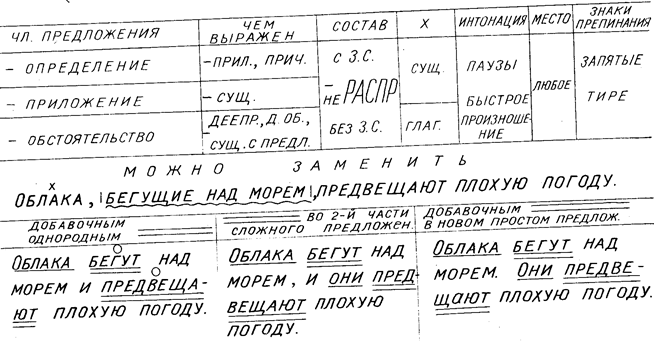 ЧЛ. ПРЕДЛОЖЕНИЯ
ЧЕМ
ВЫРАЖЕН
СОСТАВ
Х
ИНТОНАЦИЯ
МЕСТО
ЗНАКИ
ПРЕПИНАНИЯ
- ОПРЕДЕЛЕНИЕ
- ПРИЛ., ПРИЧ.
С З.С.
СУЩ.
ПАУЗЫ
ЛЮБОЕ
ЗАПЯТЫЕ
- ПРИЛОЖЕНИЕ
- СУЩ.
- НЕ РАСПР
БЫСТРОЕ
ПРОИЗНОШЕ
НИЕ
ТИРЕ
- ОБСТОЯТЕЛЬСТВО
ДЕЕПР., Д.ОБ.,
СУЩ. С ПРЕДЛ.
БЕЗ З.С.
ГЛАГ.
МОЖНО ЗАМЕНИТЬ
Х
ОБЛАКА, |БЕГУЩИЕ НАД МОРЕМ|, ПРЕДВЕЩАЮТ ПЛОХУЮ ПОГОДУ.
ДОБАВОЧНЫМ
ОДНОРОДНЫМ
ОБЛАКА БЕГУТ НАД
МОРЕМ И ПРЕДВЕЩА-
ЮТ ПЛОХУЮ ПОГОДУ.
ВО 2-Й ЧАСТИ
СЛОЖНОГО ПРЕДЛОЖЕН.
ОБЛАКА БЕГУТ НАД
МОРЕМ, И ОНИ ПРЕД-
ВЕЩАЮТ ПЛОХУЮ
ПОГОДУ.
ДОБАВОЧНЫМ
В НОВОМ ПРОСТОМ ПРЕДЛОЖ.
ОБЛАКА БЕГУТ НАД
МОРЕМ. ОНИ ПРЕДВЕ-
ЩАЮТ ПЛОХУЮ ПОГОДУ.